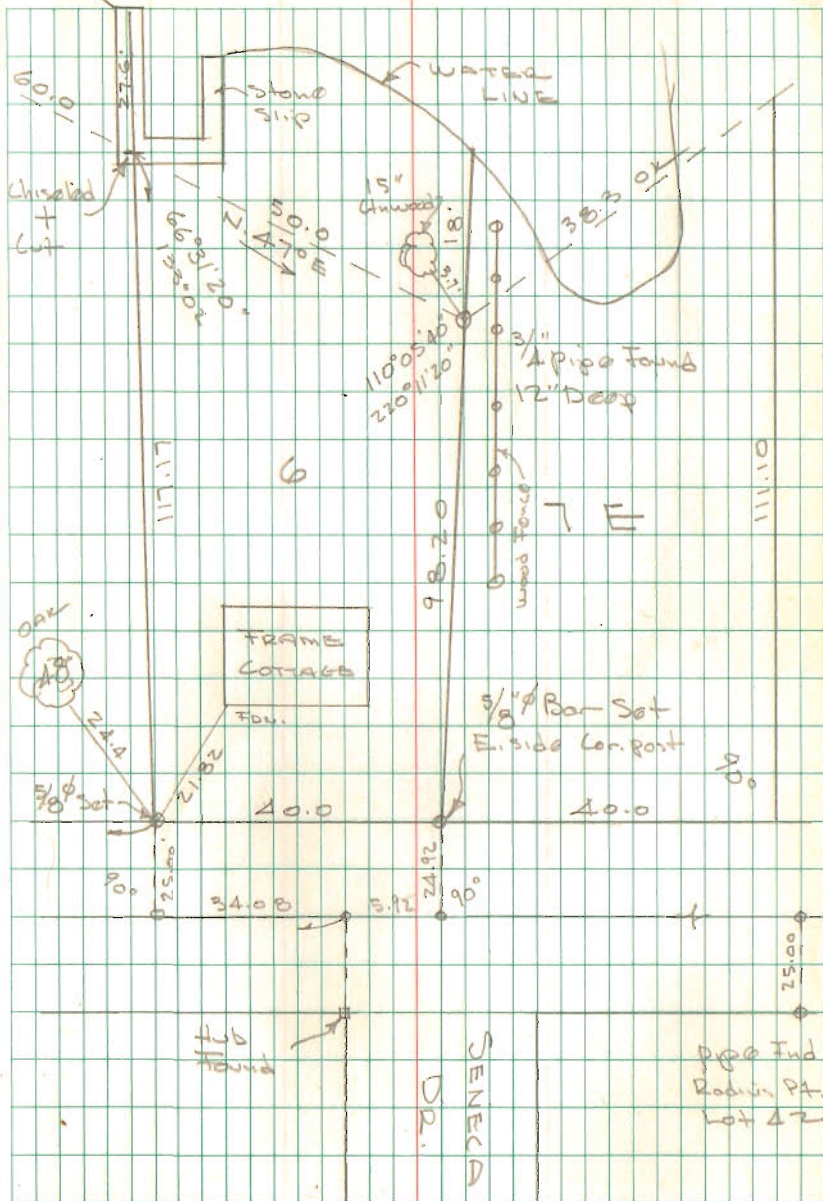 27.6'
60.0
Stone
Slip
WATER
LINE
Chiseled
+
Cut
15"
18
3.7'
38.3
50.0
N. 47° E
66°31'20"
133°02'
110°05'40"
220°11'20"
3/4" Pipe Found
12" Deep
117.17
6
98.20
Wood Fence
7 E
111.10
OAK
48"
24.4
FRAME
COTTAGE
FDN.
21.82
5/8"φ Bar Set
E. side Cor. post
5/8"φ Set
40.0
40.0
90°
90°
25.00'
34.08
5.92
24.92
90°
25.00
Hub
Found
SENECA
DR.
Pipe Fnd
Radius Pt.
Lot 42